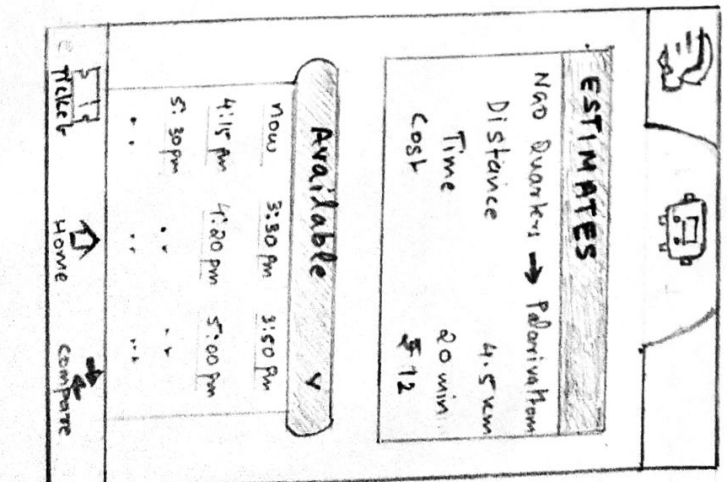 ESTIMATES
NGO Quarters → Palarivattom
Distance 4.5 km
Time 20 min
Cost ₹12
Available v
now 3:30 pm 3:50 pm
4:15 pm 4:20 pm 5:00 pm
5:30 pm .. ..
.. .. ..
Ticket Home Compare